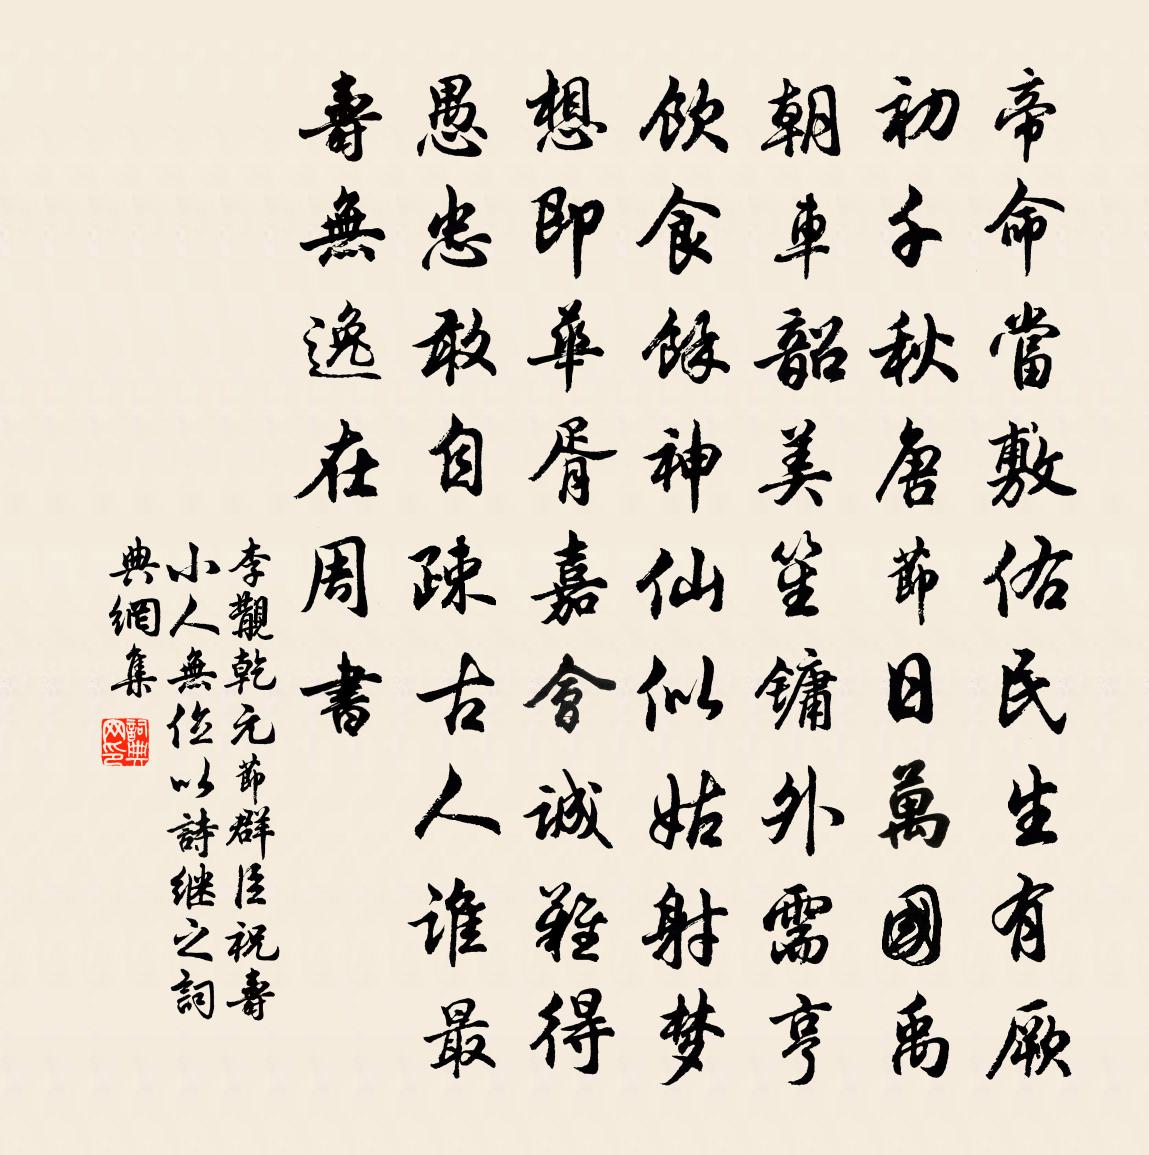 帝命當敷佑民生有厥
初千秋唐節日萬國禹
朝車韶美笙鏞外需亨
飲食餘神仙似姑射梦
想即華胥嘉會誠難得
愚忠敢自疎古人誰最
壽無逸在周書
李覯乾元節群臣祝壽
小人無位以詩継之詞
典網集
詞典網印